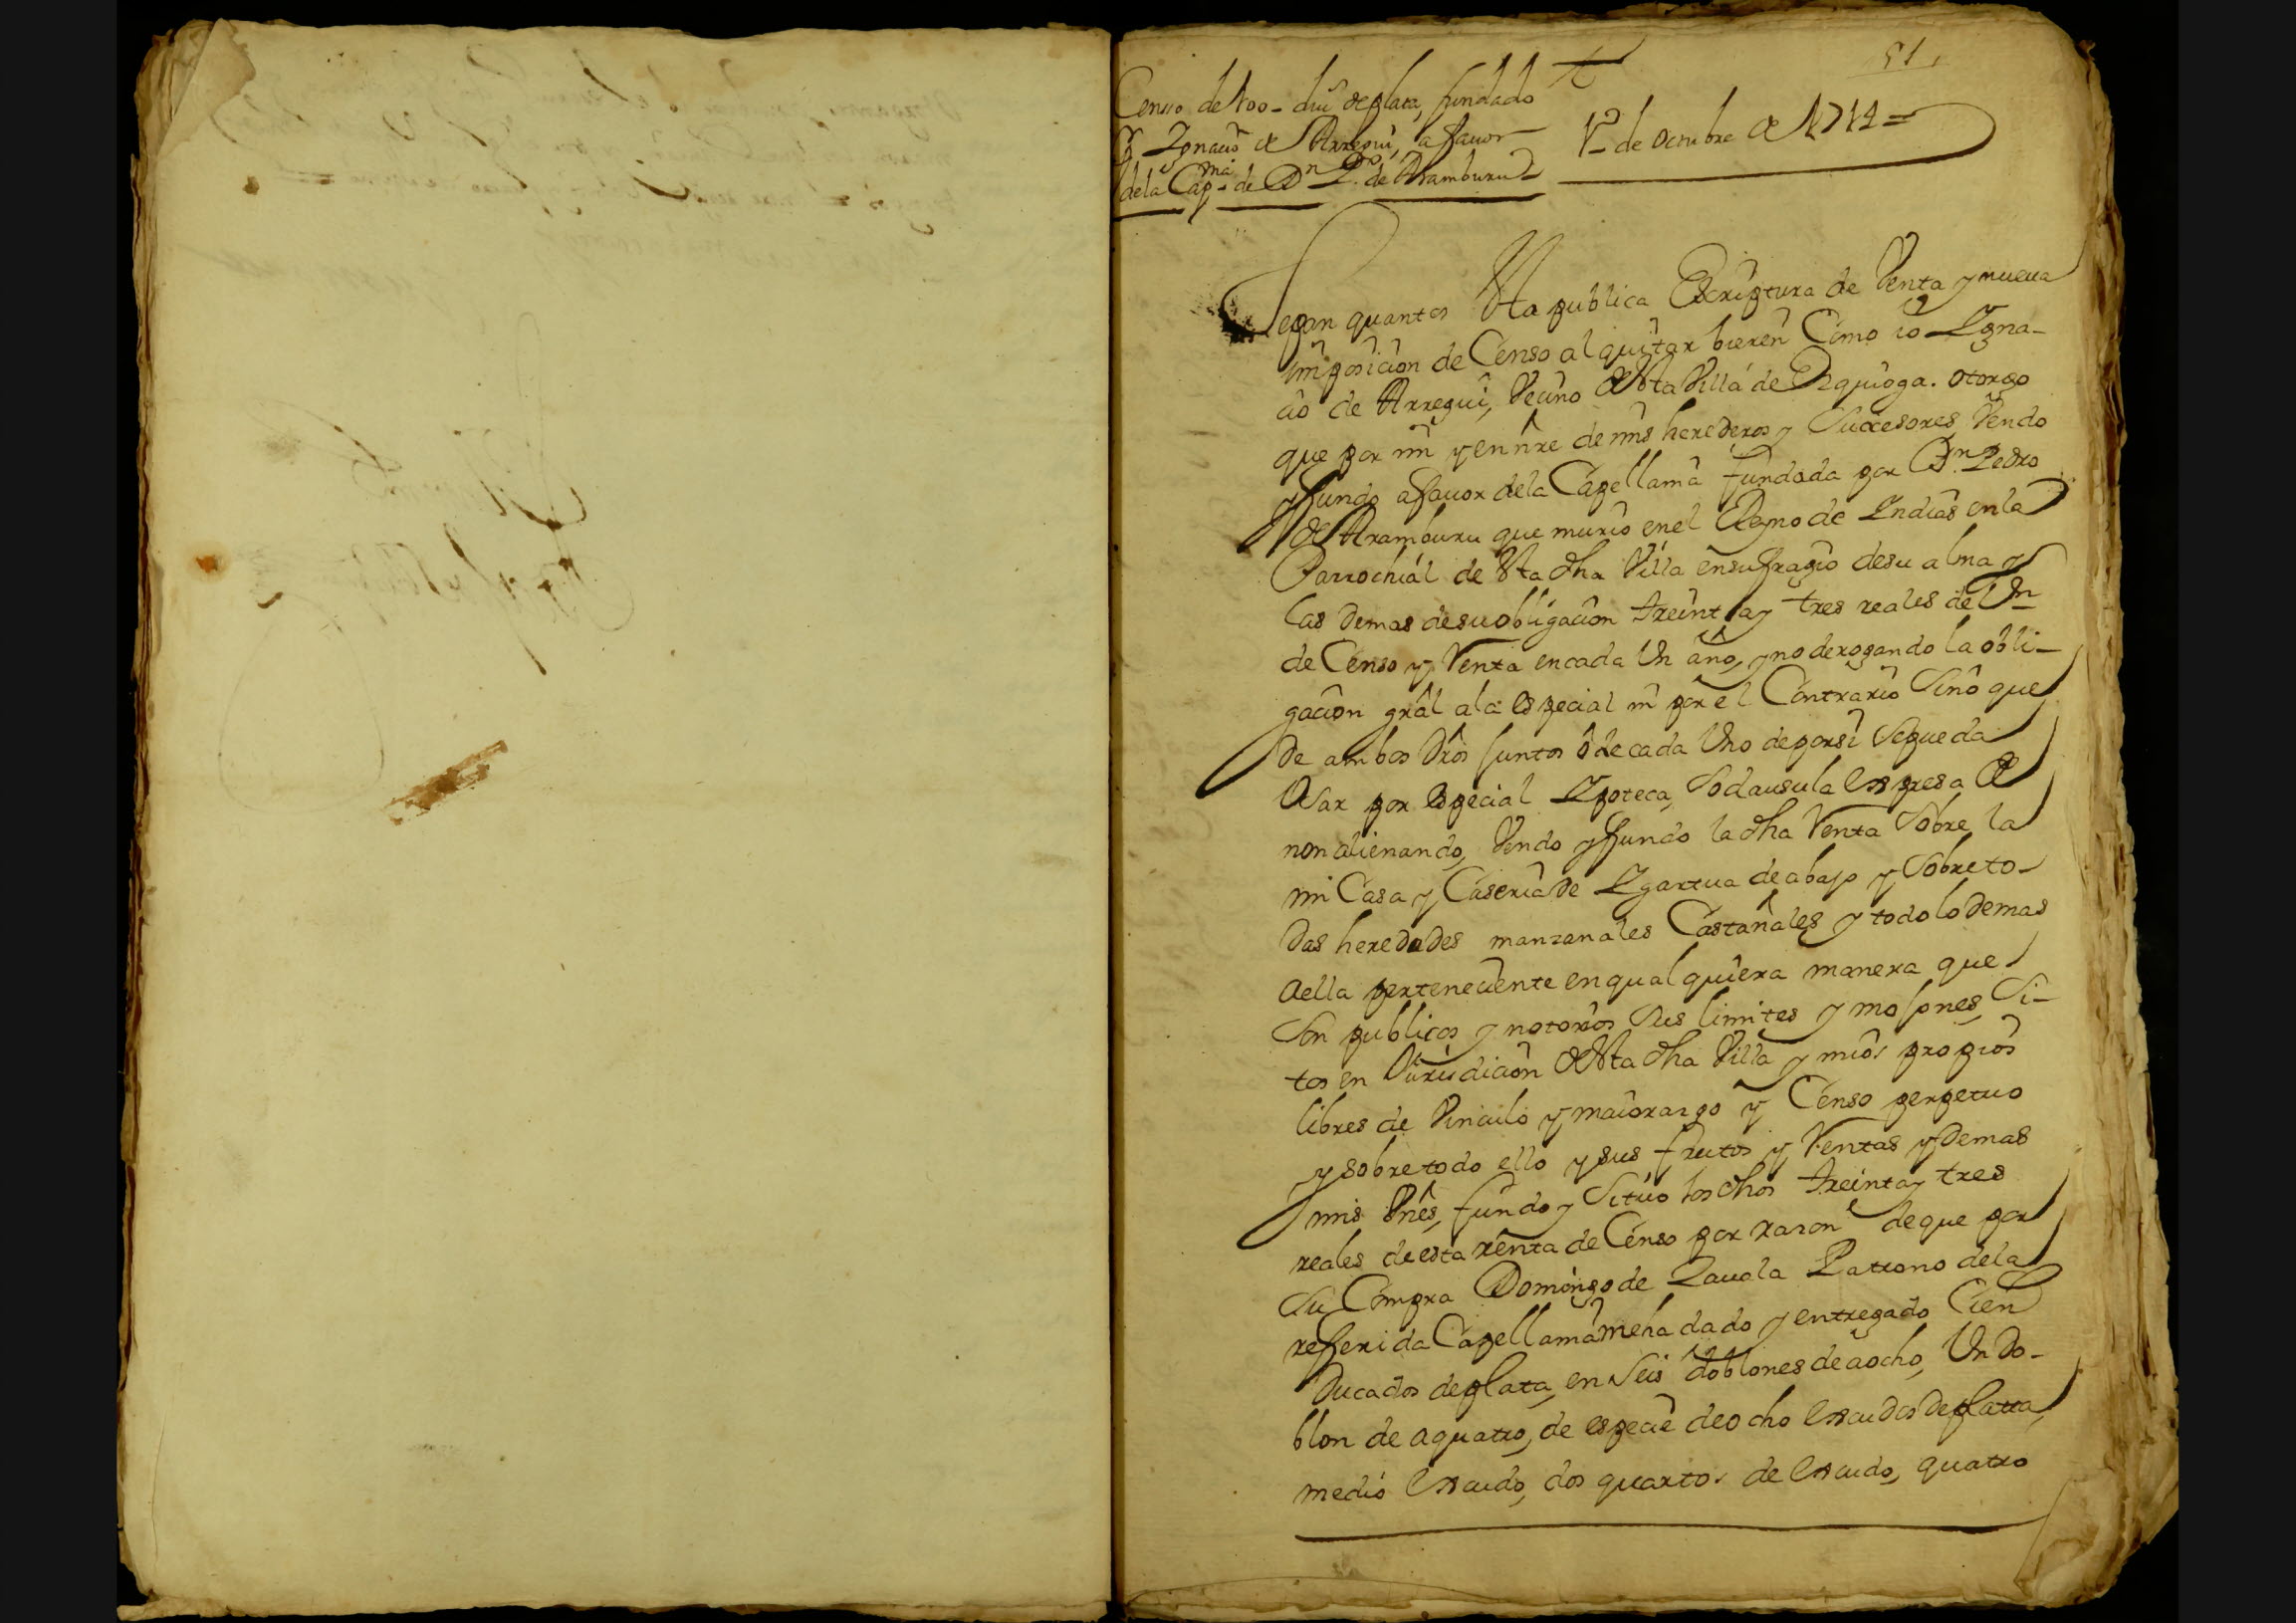 51
Censo de 100 - duc^s de plata, fundado
P^r Ignacio de Arregui, a favor
dela Cap^nia de Dn P^o de Aramburu
1º de octubre de 1712 =
Sepan quantos esta publica Escriptura de Venta y nueua
imposicion de Censo al quitar bieren Como io Igna-
cio de Arregui, Vecino desta Villa de Ezquioga. otorgo
que por mi y en nre de mis herederos y Succesores, Vendo
y fundo a fauor dela Capellania fundada por Dn Pedro
de Aramburu que murio en el Reyno de Indias en la
Parrochial de esta dha Villa en sufragio de su alma y
las demas de su obligacion treinta y tres reales de Vn
de Censo y Renta en cada Un año, y no derogando la obli-
gacion gral ala especial ni por el Contrario Sino que
de ambos dros juntos ô de cada Uno de por si Se pueda
Usar por especial Ypoteca, So clausula expresa de
non alienando, Vendo y fundo la dha Renta Sobre la
mi Casa y Caseria de Ygartua de abajo y Sobre to-
das heredades manzanales Castañales y todo lo demas
aella perteneciente en qual quiera manera que
Son publicos y notorios Sus limites y mojones, Si-
tos en Jurisdicion desta dha Villa y mios propios
libres de Vinculo y maiorazgo y Censo perpetuo
y sobre todo ello y sus frutos y Rentas y demas
mis Vnês, fundo y Situo los dhos treinta y tres
reales de esta renta de Censo por razon de que por
Su Compra Domingo de Zauala Patrono dela
refferida Capellania me ha dado y entregado Cien
Ducados de plata, en Seis doblones de aocho, Un do-
blon de aquatro, de especie de ocho escudos de plata,
medio escudo, dos quartos de escudo, quatro